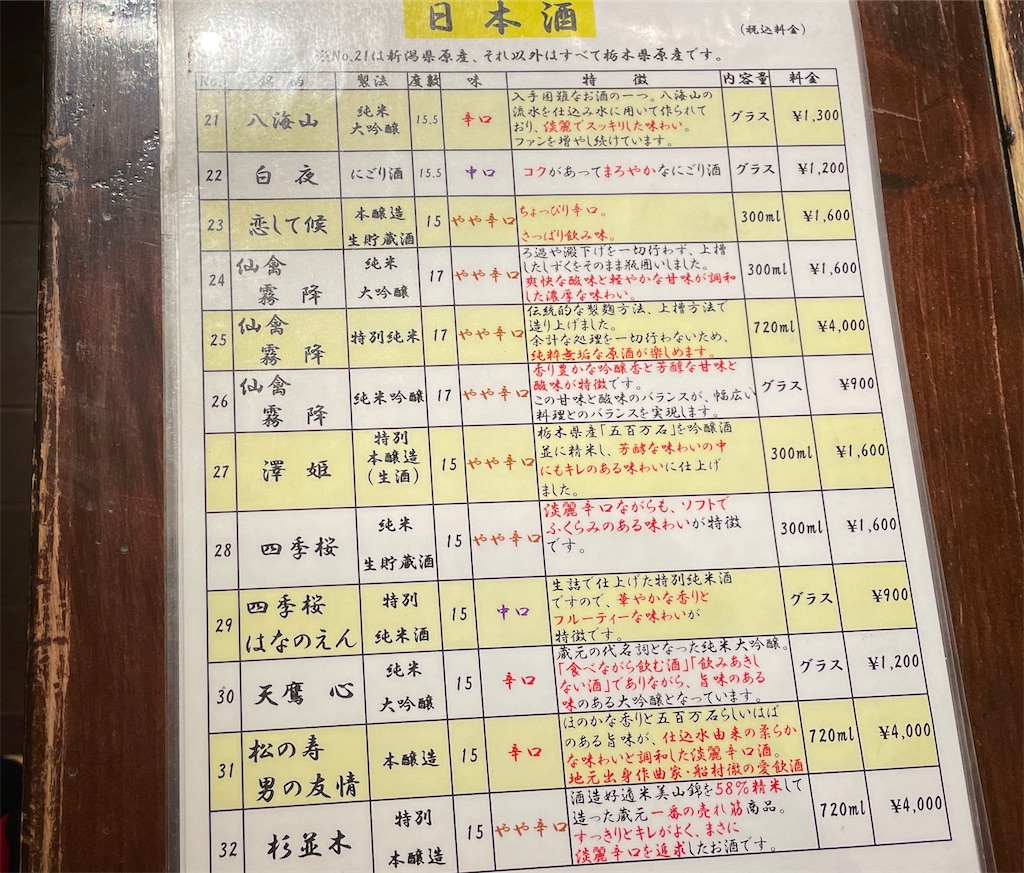 日本酒
(税込料金)
※No.21は新潟県原産、それ以外はすべて栃木県原産です。
No. 銘柄 製法 度数 味 特徴 内容量 料金
21 八海山 純米 大吟醸 15.5 辛口 グラス ¥1,300
入手困難なお酒の一つ。八海山の
流水を仕込み水に用いて作られて
おり、淡麗でスッキリした味わい。
ファンを増やし続けています。
22 白夜 にごり酒 15.5 中口 コクがあってまろやかなにごり酒 グラス ¥1,200
23 恋して候 本醸造 生貯蔵酒 15 やや辛口 300ml ¥1,600
ちょっぴり辛口。
さっぱり飲み味。
24 仙禽 霧降 純米 大吟醸 17 やや辛口 300ml ¥1,600
ろ過や澱下げを一切行わず、上槽
したしずくをそのまま瓶囲いしました。
爽快な酸味と軽やかな甘味が調和
した濃厚な味わい。
25 仙禽 霧降 特別純米 17 やや辛口 720ml ¥4,000
伝統的な製麹方法、上槽方法で
造り上げました。
余計な処理を一切行わないため、
純粋無垢な原酒が楽しめます。
26 仙禽 霧降 純米吟醸 17 やや辛口 グラス ¥900
香り豊かな吟醸香と芳醇な甘味と
酸味が特徴です。
この甘味と酸味のバランスが、幅広い
料理とのバランスを実現します。
27 澤姫 特別 本醸造 (生酒) 15 やや辛口 300ml ¥1,600
栃木県産「五百万石」を吟醸酒
並に精米し、芳醇な味わいの中
にもキレのある味わいに仕上げ
ました。
28 四季桜 純米 生貯蔵酒 15 やや辛口 300ml ¥1,600
淡麗辛口ながらも、ソフトで
ふくらみのある味わいが特徴
です。
29 四季桜 はなのえん 特別 純米酒 15 中口 グラス ¥900
生詰で仕上げた特別純米酒
ですので、華やかな香りと
フルーティーな味わいが
特徴です。
30 天鷹 心 純米 大吟醸 15 辛口 グラス ¥1,200
蔵元の代名詞となった純米大吟醸。
「食べながら飲む酒」「飲みあきし
ない酒」でありながら、旨味のある
味のある大吟醸となっています。
31 松の寿 男の友情 本醸造 15 辛口 720ml ¥4,000
ほのかな香りと五百万石らしいはば
のある旨味が、仕込水由来の柔らか
な味わいと調和した淡麗辛口酒。
地元出身作曲家・船村徹の愛飲酒
32 杉並木 特別 本醸造 15 やや辛口 720ml ¥4,000
酒造好適米美山錦を58%精米して
造った蔵元一番の売れ筋商品。
すっきりとキレがよく、まさに
淡麗辛口を追求したお酒です。